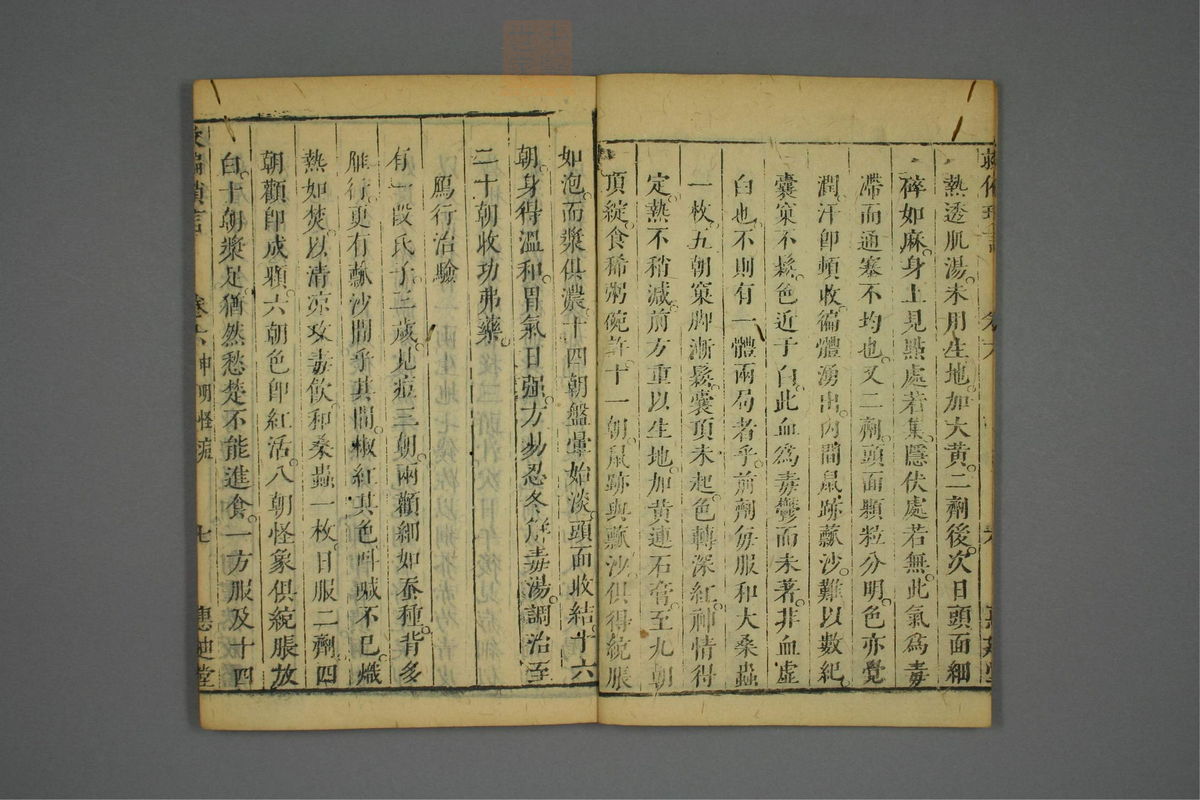 熱透肌湯。未用生地。加大黃。二劑後。次日頭面細
碎如麻。身上見點處若集。隱伏處若無。此氣爲毒
滯而通塞不均也。又二劑。頭面顆粒分明。色亦覺
潤。汗卽頓收。徧體湧出。內間鼠跡蘓沙。難以數紀。
囊窠不鬆。色近于白。此血爲毒鬱而未著。非血虛
白也。不則有一體兩局者乎。前劑毎服和大桑蟲
一枚。五朝窠脚漸鬆。囊頂未起。色轉深紅。神情得
定。熱不稍減。前方重以生地。加黃連石膏。至九朝
頂綻。食稀粥碗許。十一朝。鼠跡與蘓沙。俱得統脹
如泡。而漿俱濃。十四朝盤暈始淡。頭面收結。十六
朝。身得溫和。胃氣日强。方易忍冬解毒湯。調治至
二十朝收功弗藥。
鴈行治驗
有一段氏子。三歲。見痘三朝。兩顴細如蚕種。背多
雁行。更有蘓沙間乎其間。椒紅其色。呌喊不已。熾
熱如焚。以清凉攻毒飲。和桑蟲一枚。日服二劑。四
朝顴卽成顆。六朝色卽紅活。八朝怪象俱統脹放
白。十朝漿足。猶然愁楚不能進食。一方服及十四
卷六 申明怪痘 七 惠迪堂